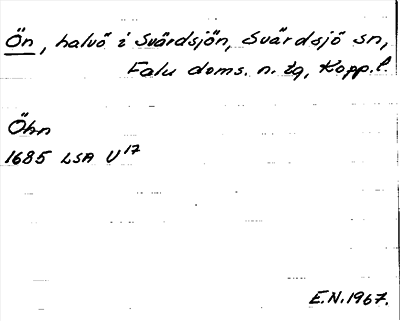 Ön, halvö i Svärdsjön, Svärdsjö sn,
Falu doms. n. tg, Kopp.l.
Öhn
1685 LSA U¹⁷
E.N.1967.